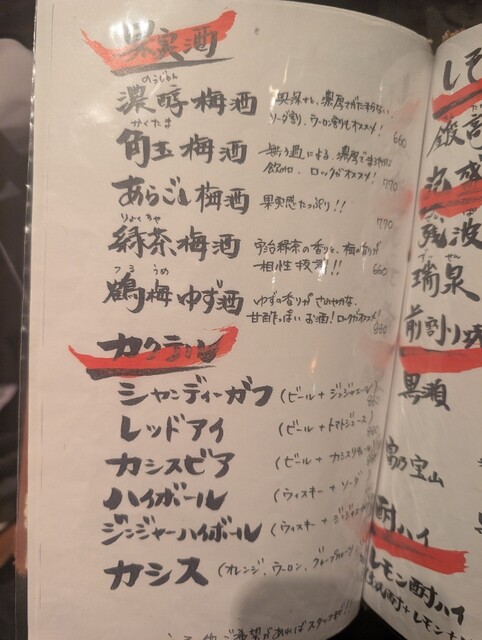 果実酒
のうじゅん
濃醇梅酒
ソーダ割、ウーロン割もオススメ!
660
かくたま
角玉梅酒
無ろ過による、濃厚でまろやかな
飲み口、ロックがオススメ!
770
あらごし梅酒 果実感たっぷり!!
770
りょくちゃ
緑茶梅酒
宇治緑茶の香りと、梅の香りが
相性抜群!!
660
つる うめ
鶴梅ゆず酒
ゆずの香りがさわやかな、
甘酢っぱいお酒!ロックがオススメ!
カクテル
シャンディーガフ (ビール+ジンジャエール)
レッドアイ (ビール+トマトジュース)
カシスビア (ビール+カシスリキュール
ハイボール (ウィスキー+ソーダ
ジンジャーハイボール (ウィスキー+ジンジャ
カシス (オレンジ、ウーロン、グレープフルーツ
ご希望があればスタッフまで!!
レモ
残波
瑞泉
前割り焼
黒瀬
宝山
酎ハイ
レモン酎ハイ